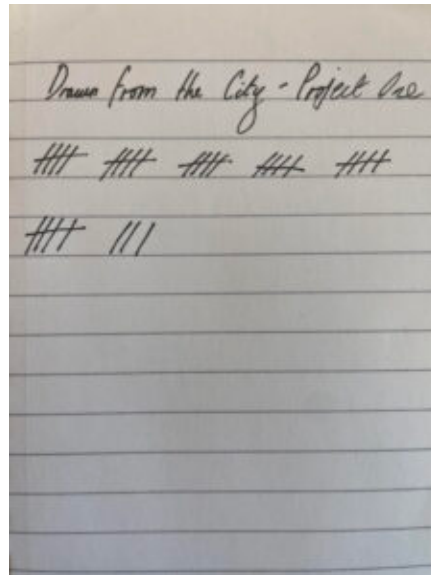 Drawn from the City - Project One